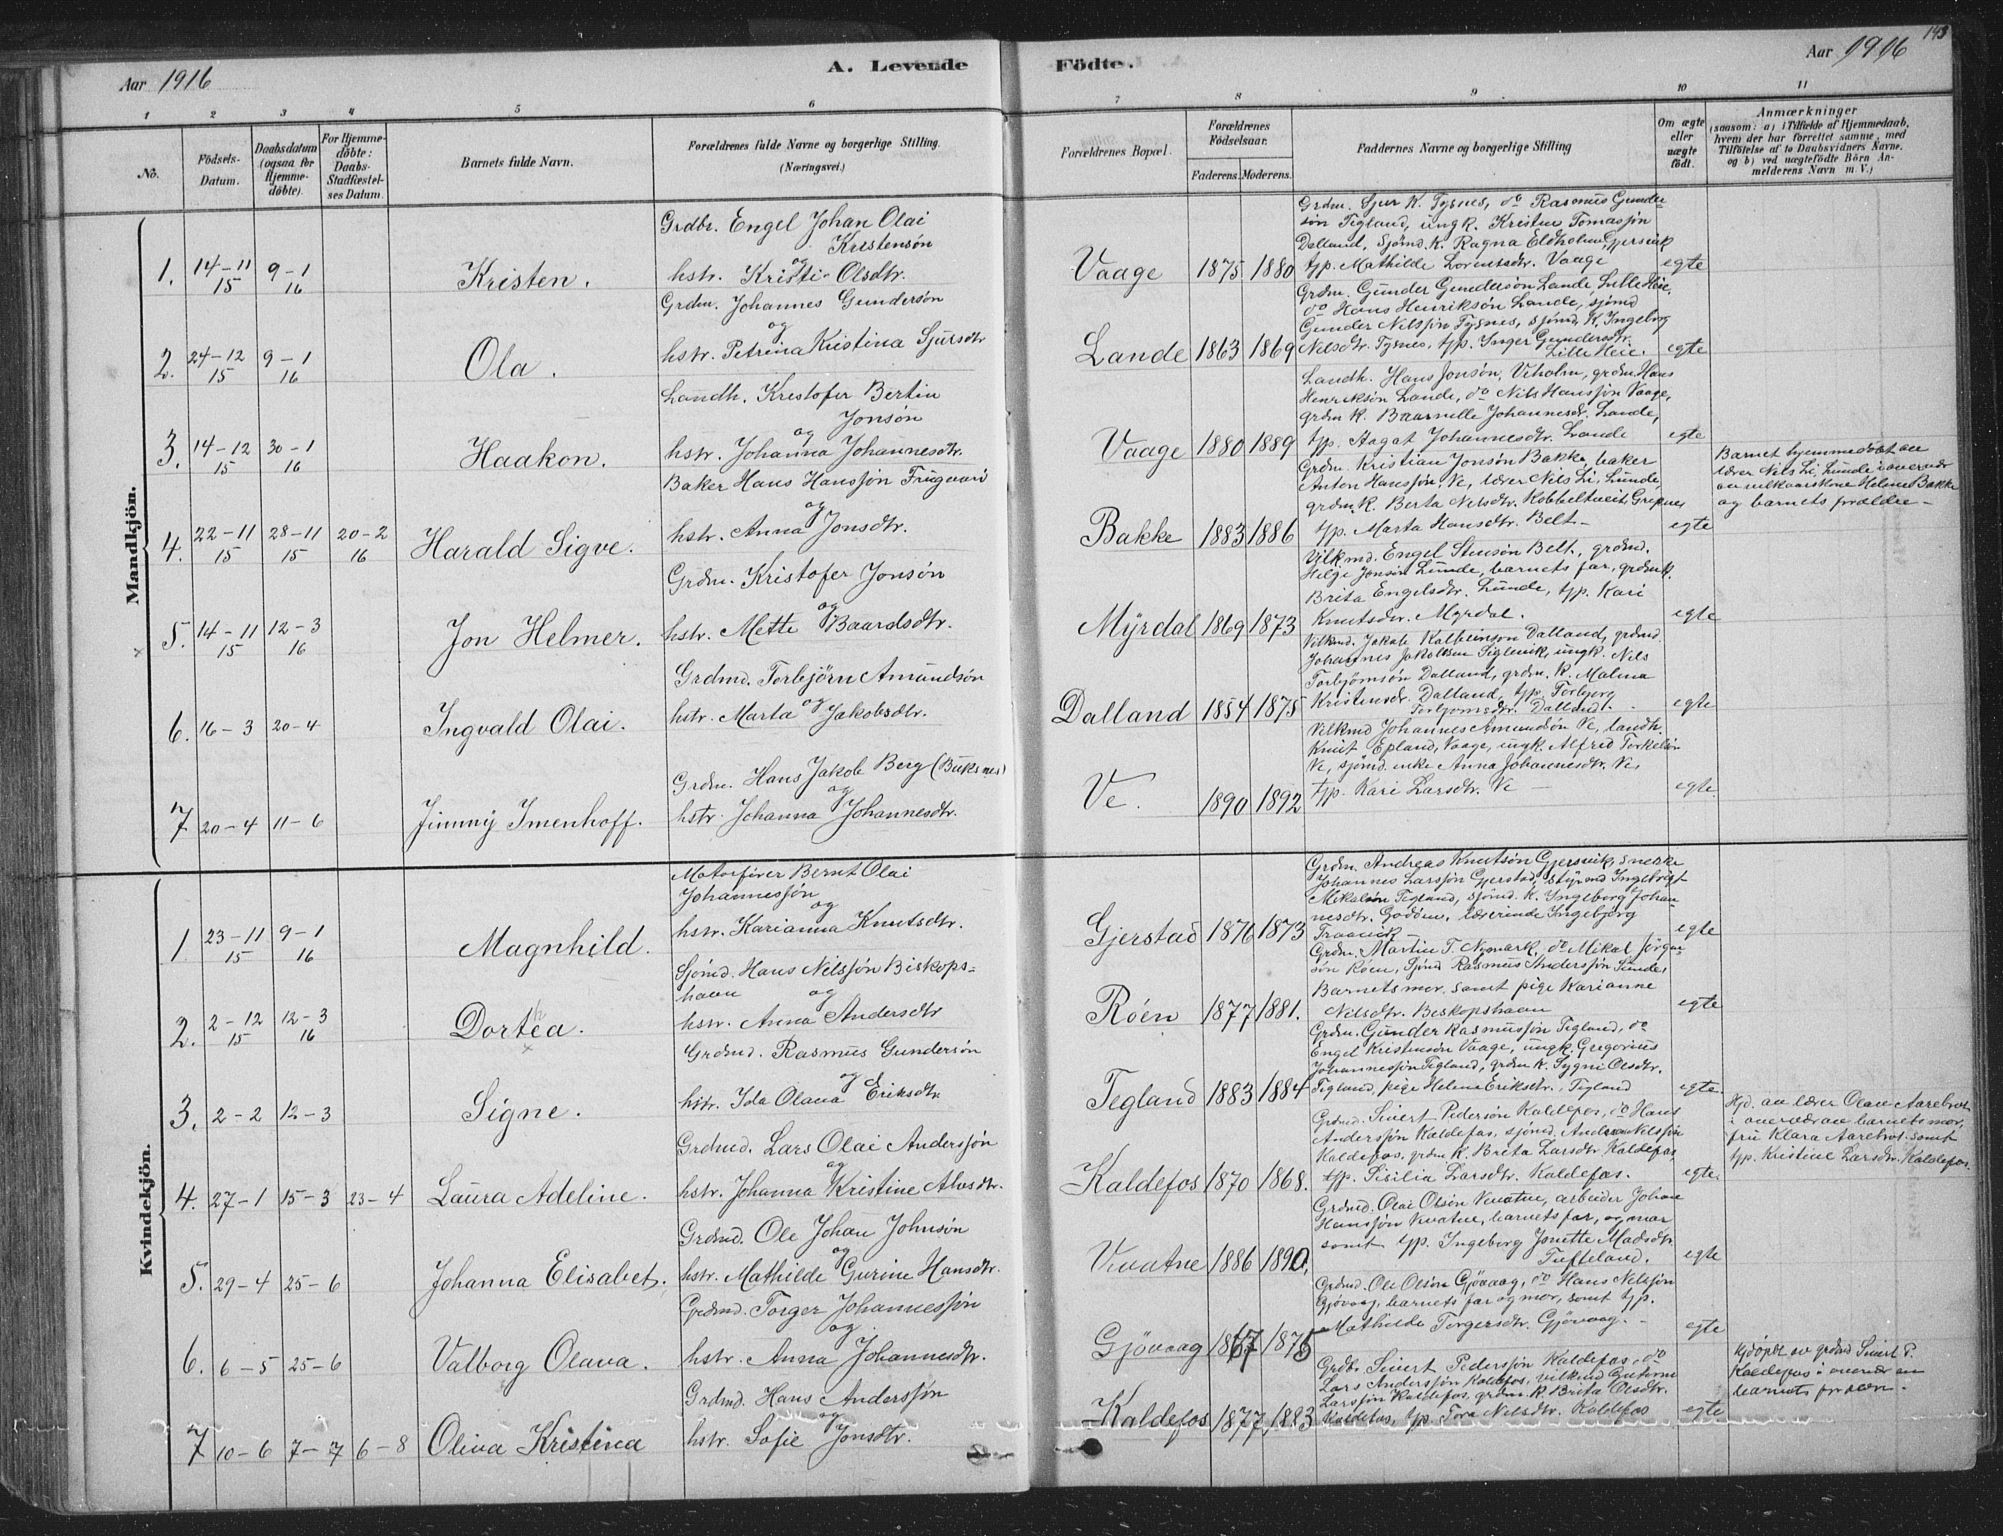 Aar 1916
A. Levende
Födte.
Aar 1916
143
1 2 3 4 5 6 7 8 9 10 11
No.
Födsels-
Datum.
Daabsdatum
(ogsaa for
Hjemme-
döbte).
For Hjemme-
döbte:
Daabs-
Stadfæstel-
ses Datum.
Barnets fulde Navn.
Forældrenes fulde Navne og borgerlige Stilling.
(Næringsvei.)
Forældrenes Bopæl.
Forældrenes
Födselsaar.
Faderens. Moderens.
Faddernes Navne og borgerlige Stilling
Om ægte
eller
uægte
født.
Anmærkninger
(saasom: a) i Tilfælde af Hjemmedaab,
hvem der har forrettet samme, med
Tilföielse af to Daabsvidners Navne.
og b) ved uægtefödte Börn An-
melderens Navn m. V.)
Mandkjön.
1. 14-11 15 9-1 16 Kristen.
Grdbr. Engel Johan Olai
Kristensön
og
hstr. Kristi Olsdtr.
Vaage 1875 1880
Grdm. Sjur K. Tysnes, do Rasmus Gunder-
sön Tegland, ungk. Kristen Tomassön
Dalland, Sjömd. K. Ragna Eldholm, Gjersvik
tjp. Mathilde Lorentsdtr. Vaage
egte
2. 24-12 15 9-1 16 Ola.
Grdm. Johannes Gundersön
og
hstr. Petrina Kristina Sjursdtr
Lande 1863 1869
Grdm. Gunder Gundersön Lande, Lille Heie,
do Hans Henriksön Lande, sjömd
Gunder Nilssön Tysnes, sjömd. K. Ingeborg
Nilsdtr. Tysnes, tjp. Inger Gundersdtr.
Lille Heie.
egte
3. 14-12 15 30-1 16 Haakon.
Landh. Kristofer Bertin
Jonsön
og
hstr. Johanna Johannesdtr.
Vaage 1880 1889
Landh. Hans Jonsön, Veholm, grdm Hans
Henriksön Lande, do Nils Hanssön Vaage,
grdm K. Baarnille Johannesd. Lande,
tjp. Aagat Johannesdtr. Lande
egte
4. 22-11 15 28-11 15 20-2 16 Harald Sigve.
Baker Hans Hanssön
og
hstr. Anna Jonsdtr.
Bakke 1883 1886
Grdm. Kristian Jonsön Bakke, baker
Anton Hanssön Ve, lærer Nils Li, Lunde,
grdm K. Berta Nilsdtr.
tjp. Marta Hansdtr. Belt
egte
Barnet hjemmedöbt av
lærer Nils Li, Lunde i overvær
av vilkaarskone Helene Bakke
og barnets forældre
5. 14-11 15 12-3 16 Jon Helmer.
Grdm. Kristofer Jonsön
og
hstr. Mette Baardsdtr.
Myrdal 1869 1873
Vilkmd. Engel Stensön Belt, grdmd.
Helge Jonsön Lunde, barnets far, grdm K.
Brita Engelsdtr. Lunde, tjp. Kari
Knutsdtr. Myrdal.
egte
6. 16-3 20-4 Ingvald Olai.
Grdmd. Torbjörn Amundsön
og
hstr. Marta Jakobsdtr.
Dalland 1854 1875
Vilkmd. Jakob Dalland, grdmd.
Johannes Jakobsen ungk. Nils
Torbjörnsön Dalland, grdm. K. Malena
Kristensdtr. Dalland, tjp. Torbjørg
Torbjornsdtr. Dalland.
egte
7 20-4 11-6 Jimmy Imenhoff.
Grdm. Hans Jakob Berg (Buksnes)
og
hstr. Johanna Johannesdtr.
Ve. 1890 1892
Vilkmd Johannes Amundsön Ve, landh.
Knut Epland, Vaage, ungk. Alfred Torkelsön
Ve, sjömd. enke Anna Johannesdtr. Ve,
tjp. Kari Larsdtr. Ve
egte.
Kvindekjön.
1 23-11 15 9-1 16 Magnhild.
Motorförer Bernt Olai
Johannessön
og
hstr. Karianna Knutsdtr.
Gjerstad 1876 1873
Grdm. Andreas Knutsön Gjersvik, snekke
Johannes Larssön Gjerstad, styrmd Ingebrigt
Mikalsön Tegland, sjömd. K. Ingeborg Johan-
nesdtr. Godöen, lærerinde Ingebjörg
egte
2. 2-12 15 12-3 16 Dortea.
Sjömd. Hans Nilssön Biskops-
havn og
hstr. Anna Andersdtr
Röen 1877 1881.
Grdm. Martin T. Nymark, do Mikal Jörgen-
sön Röen, Sjömd Rasmus Anderssön Sunde,
Barnets mor, samt pige Karianne
Nilsdtr. Beskopshavn
egte
3. 2-2 12-3 Signe.
Grdmd. Rasmus Gundersön
og
hstr. Ida Olava Eriksdtr.
Tegland 1883 1884
Grdm. Gunder Rasmussön Tegland, do
Engel Kristensön Vaage, ungk. Gregorius
Johannessön Tegland, grdm K. Sygni Olsdtr.
Tegland, pige Helene Eriksdtr. Tegland
egte
4. 27-1 15-3 23-4 Laura Adeline.
Grdmd. Lars Olai Anderssön
og
hstr. Johanna Kristine
Kaldefos 1870 1868.
Grdmd. Sivert Pedersön Kaldefos, do Hans
Anderssön Kaldefos, sjömd. Anders Nilssön
Kaldefos, grdm K. Brita Larsdtr Kaldefos,
tjp. Sisilia Larsdtr. Kaldefos.
egte
Hjd. av lærer Olav Aarebrot
i overvær av barnets mor,
fru Klara Aarebrot samt
tjp. Kristine Larsdtr. Kaldefos.
5. 29-4 25-6 Johanna Elisabet.
Grdmd. Ole Johan Johnsön
og
hstr. Mathilde Gurine Hansdtr.
Kvatne 1886 1890,
Grdmd. Olai Olsön Kvatne, arbeider Johan
Hanssön Kvatne, barnets far, og mor
samt tjp. Ingeborg Jonette Madsdtr
Tufteland.
egte
6. 6-5 25-6 Valborg Olava.
Grdmd. Torger Johannessön
og
hstr. Anna Johannesdtr.
Gjövaag 1867 1875
Grdmd. Ole Olsön Gjövaag, do Hans Nilssön
Gjövaag, barnets far og mor, samt tjp.
Mathilde Torgersdtr. Gjövaag.
egte
7 10-6 7-7 6-8 Oliva Kristina
Grdmd. Hans Anderssön
og
hstr. Sofie Jonsdtr.
Kaldefos 1877 1883
Grdbr. Sivert Pederssön Kaldefos, do
Lars Anderssön Kaldefos, vilkmd Guttorm
Larssön Kaldefos, grdm K. Brita Olsdtr.
Kaldefos, tjp. Tora Nilsdtr. Kaldefos
egte
Hjdöpt av grdmd Sivert P.
Kaldefos i overvær av
barnets forældre.